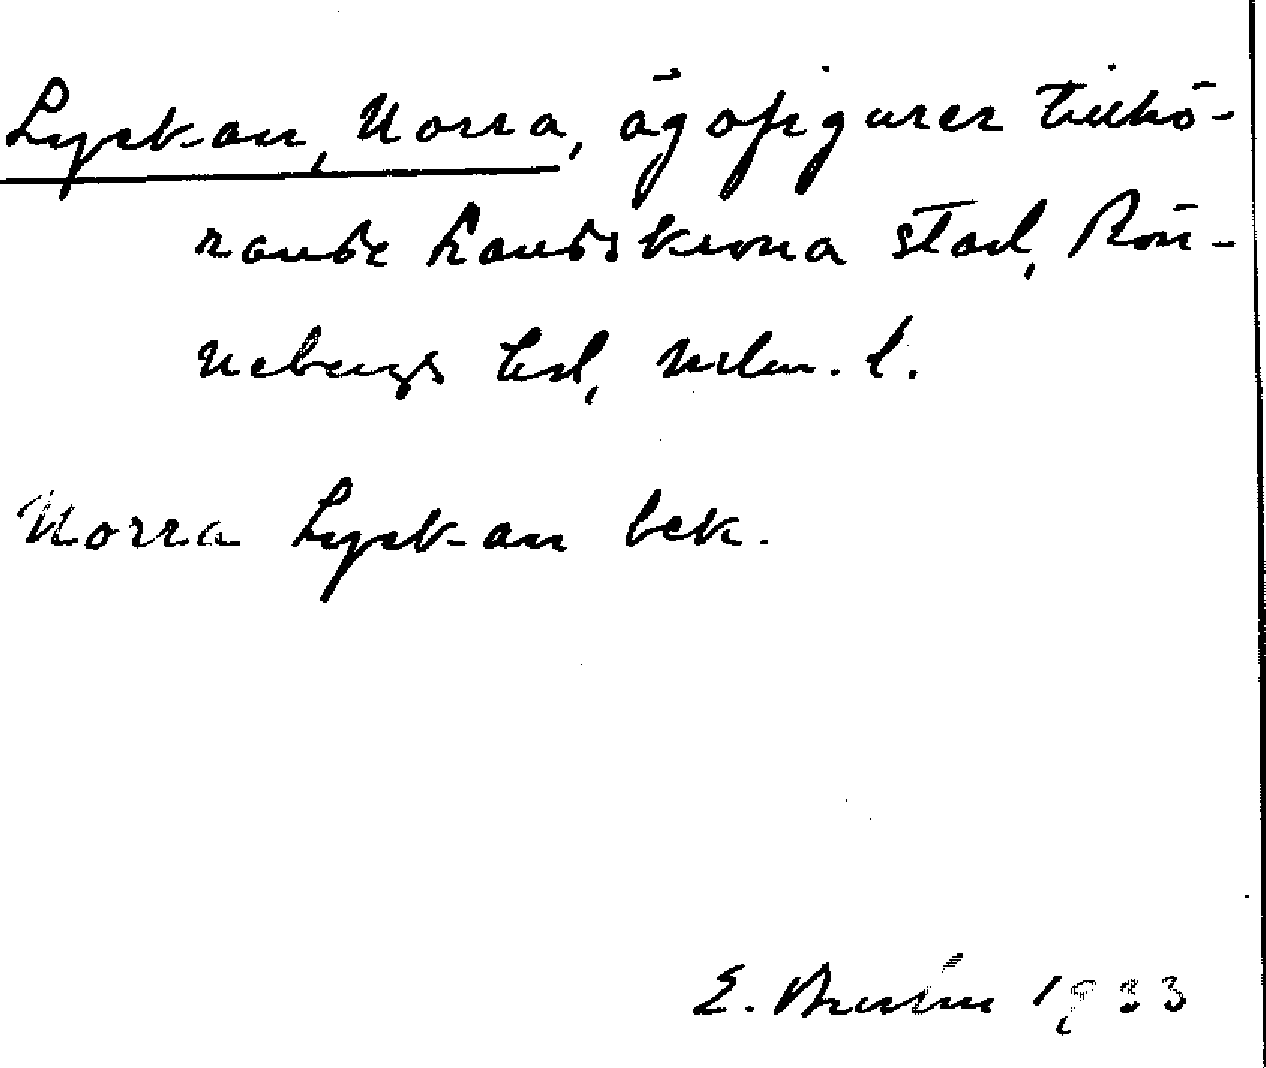 Lyckan, Norra, ägofigurer tillhö-
rande Landskrona stad, Rön-
nebergs hd, Mlm. l.
Norra Lyckan bek.
E. 1933